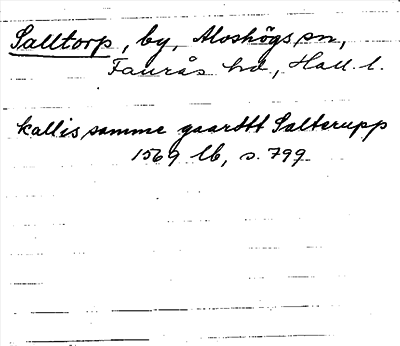 Salltorp, by, Aloshögs sn,
Faurås hd, Hall. l.
kallis samme gaardtt Salterupp
1569 lb, s. 799